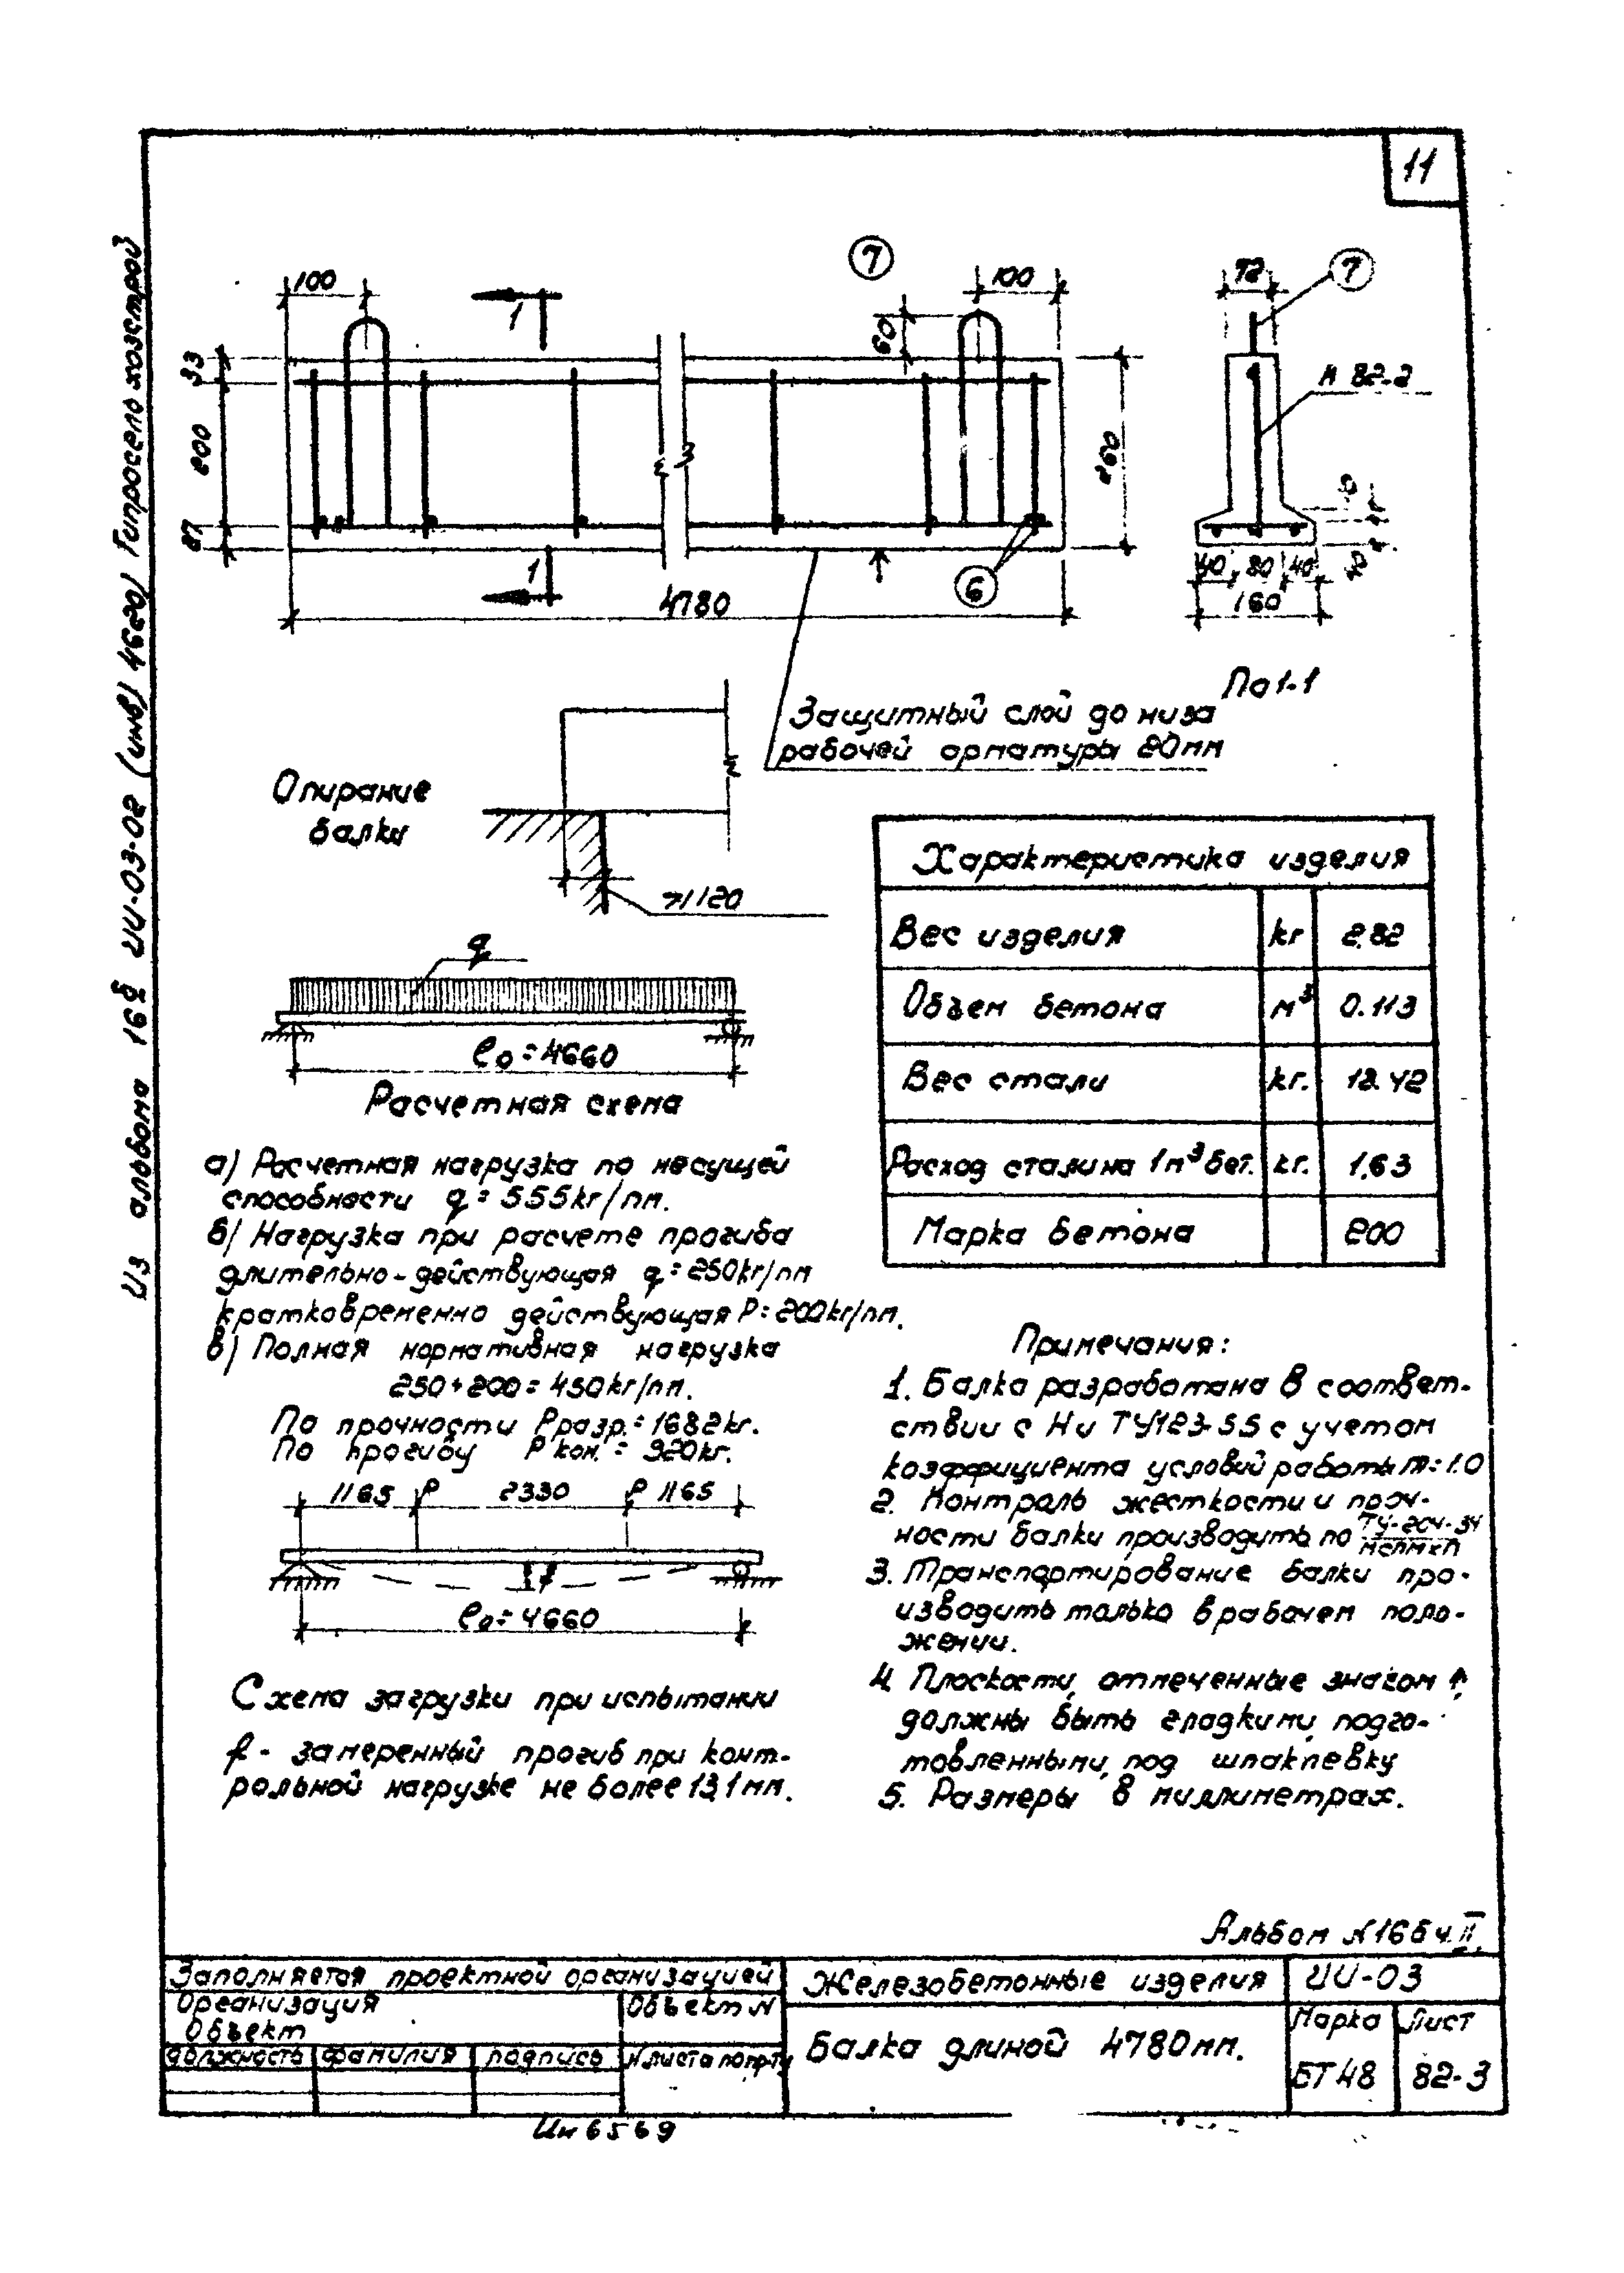 11
Из альбома 16б ИИ-03-02 (инв) 4620) Гипросельхозстрой
7
100
1
60
100
72
7
33
200
27
260
К 82-2
1
6
4780
40 80 40
160
По 1-1
Защитный слой до низа
рабочей арматуры 20мм
Опирание
балки
>120
q
ℓ₀ = 4660
Расчетная схема
а) Расчетная нагрузка по несущей
способности q = 555kг/пм.
б) Нагрузка при расчете прогиба
длительно-действующая q = 250kг/пм
кратковременно действующая P = 200kг/пм.
в) Полная нормативная нагрузка
250 + 200 = 450kг/пм.
По прочности Pразр. = 1682kг.
По прогибу P кон. = 920kг.
1165 P 2330 P 1165
f
ℓ₀ = 4660
Схема загрузки при испытании
f - замеренный прогиб при конт-
рольной нагрузке не более 13,1мм.
Характеристика изделия
Вес изделия kг 282
Объем бетона м³ 0.113
Вес стали kг. 12.42
Расход стали на 1м³ бет. kг. 1,63
Марка бетона 200
Примечания:
1. Балка разработана в соответ-
ствии с Н и ТУ123-55 с учетом
коэффициента условий работы m = 1.0
2. Контроль жесткости и проч-
ности балки производить по ТУ-204-54
мспмхп
3. Транспортирование балки про-
изводить только в рабочем поло-
жении.
4. Плоскости, отмеченные знаком ↑,
должны быть гладкими, подго-
товленными под шпаклевку
5. Размеры в миллиметрах.
Альбом №16б ч.II.
Заполняется проектной организацией
Организация
Объект N
Объект
должность фамилия подпись N листа по пр-ту
Железобетонные изделия
ИИ-03
Балка длиной 4780мм.
Марка
Лист
БТ48
82-3
Ин 6569